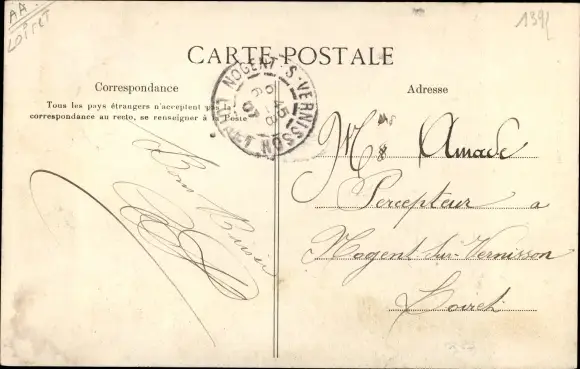 AA
Loiret
139
CARTE POSTALE
Correspondance
Tous les pays étrangers n'acceptent pas la
correspondance au recto, se renseigner à la Poste
Adresse
NOGENT-S-VERNISSON
LOIRET
Bons Baisers
Amade
Percepteur a
Nogent-sur-Vernisson
Loiret